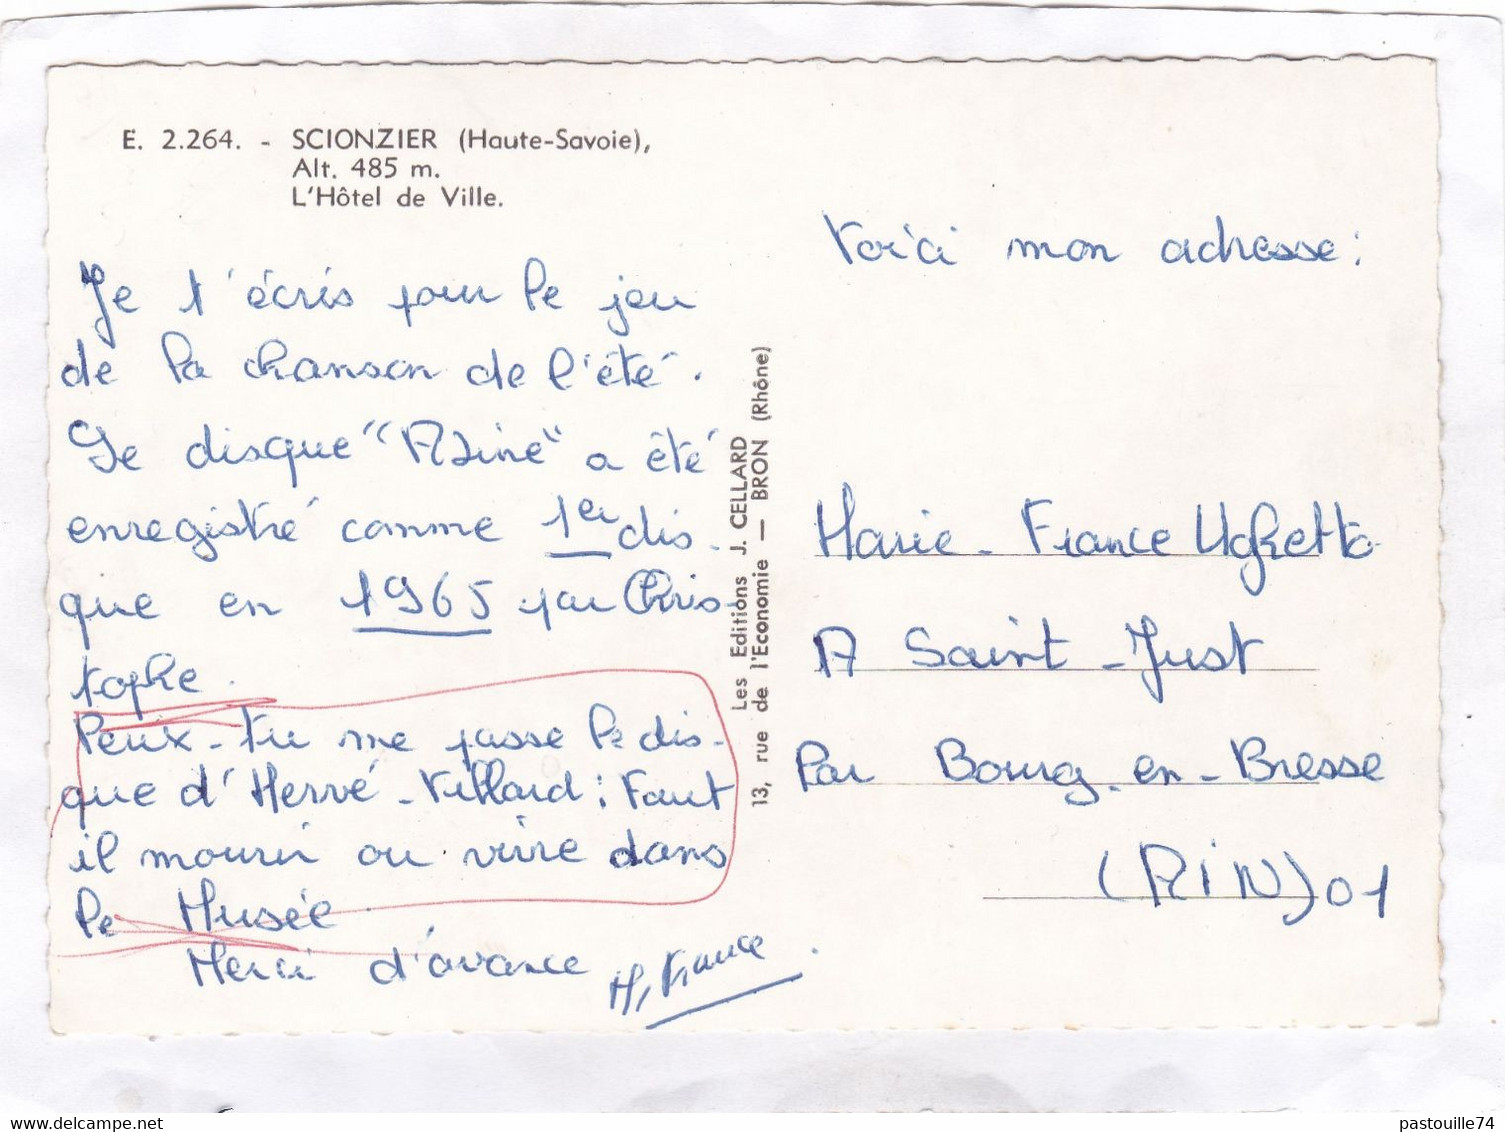 E. 2.264. - SCIONZIER (Haute-Savoie),
Alt. 485 m.
L'Hôtel de Ville.
Je t'écris pour le jeu
de la chanson de l'été.
Le disque "Aline" a été
enregistré comme 1er dis-
que en 1965 par Chris-
tophe.
Peux-tu me passe le dis-
que d'Hervé-Villard : Faut
il mourir ou vivre dans
le Musée
Merci d'avance
M, France.
Les Editions J. CELLARD
13, rue de l'Economie — BRON (Rhône)
Voici mon adresse :
Marie-France Ughetto
A Saint-Just
Par Bourg-en-Bresse
(AIN) 01
pastouille74
www.delcampe.net